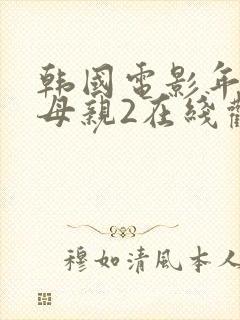 韩國電影年
母親2在綫
穆如清風本人